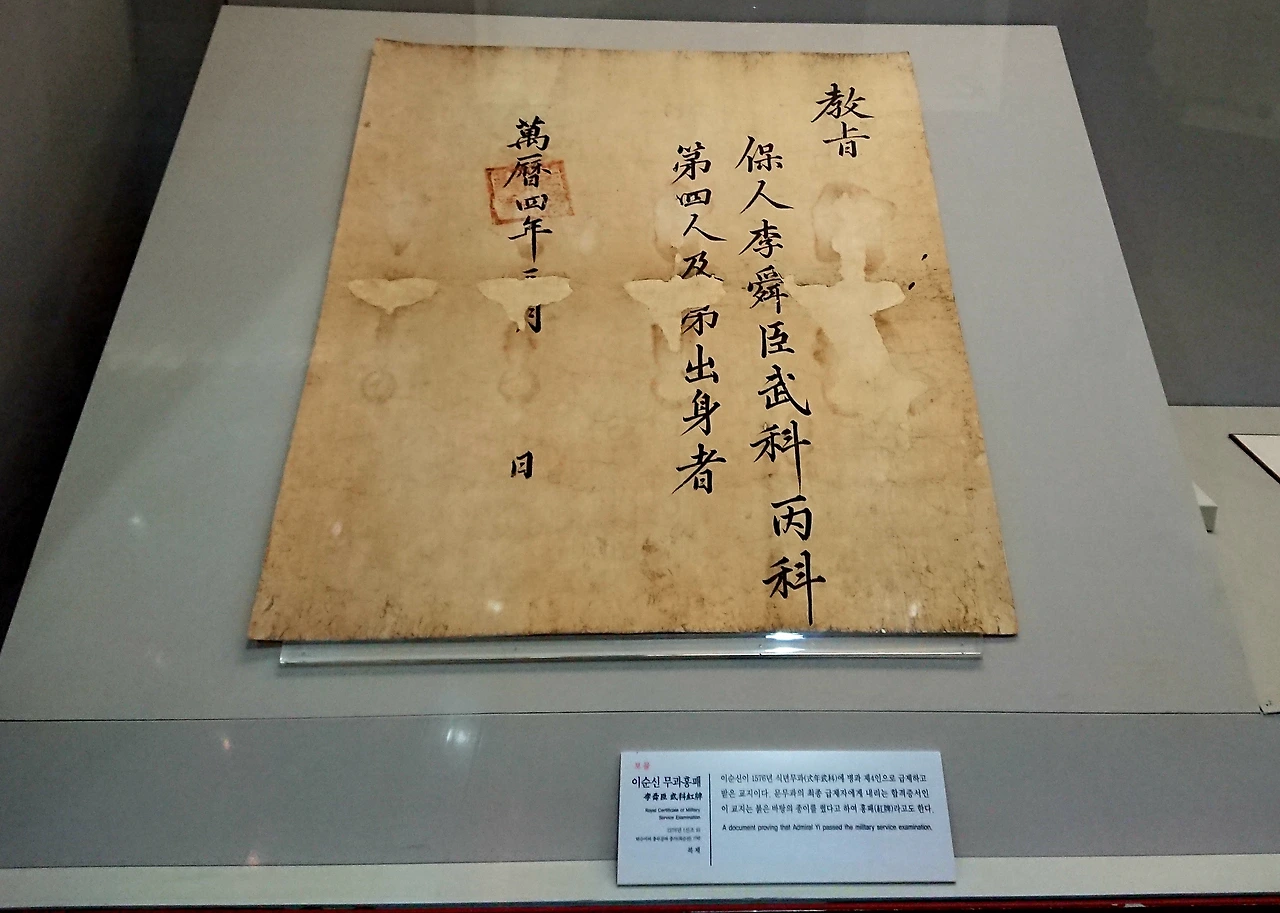 教旨
保人李舜臣武科丙科
第四人及第出身者
萬曆四年三月 日
보물
이순신 무과홍패
李舜臣 武科紅牌
Royal Certificate of Military
Service Examination
1576년 (선조 9)
복제
이순신이 1576년 식년무과(式年武科)에 병과 제4인으로 급제하고
받은 교지이다. 문무과의 최종 급제자에게 내리는 합격증서인
이 교지는 붉은 바탕의 종이를 썼다고 하여 홍패(紅牌)라고도 한다.
A document proving that Admiral Yi passed the military service examination.